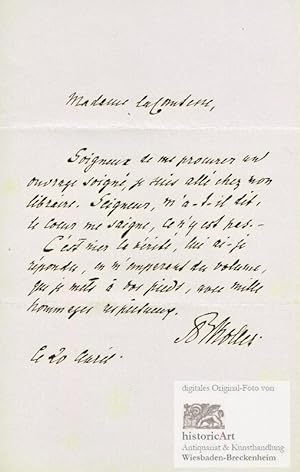 Madame la Comtesse,
Soigneux de me procurer un
ouvrage soigné, je suis allé chez mon
libraire. Seigneur, m'a-t-il dit,
le cœur me saigne, ce n'y est pas. —
C'est moi la vérité, lui ai-je
répondu, en m'emparant du volume,
que je mets à vos pieds, avec mille
hommages respectueux.
Ce 20 Avril.
digitales Original-Foto von
historicArt
Antiquariat & Kunsthandlung
Wiesbaden-Breckenheim